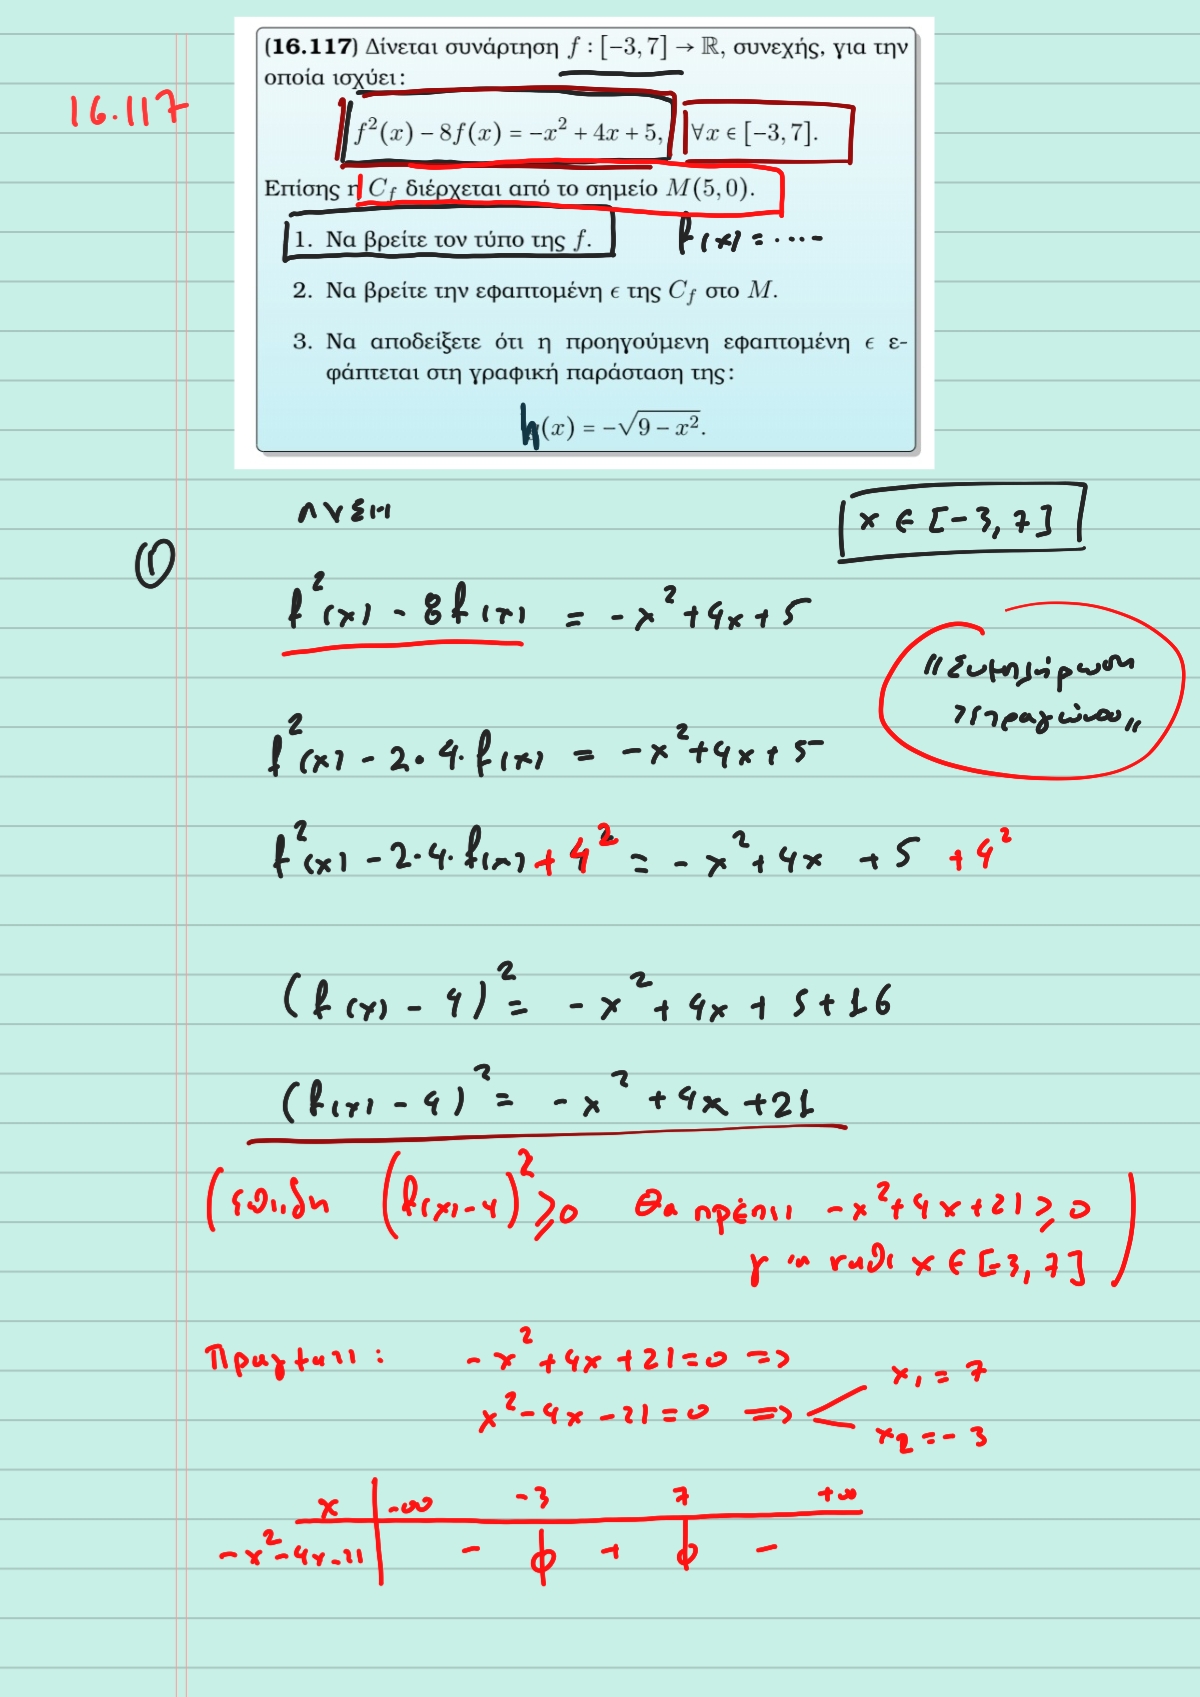 16.117
(16.117) Δίνεται συνάρτηση f : [−3, 7] → ℝ, συνεχής, για την
οποία ισχύει:
f²(x) − 8f(x) = −x² + 4x + 5, ∀x ∈ [−3, 7].
Επίσης η C_f διέρχεται από το σημείο M(5, 0).
1. Να βρείτε τον τύπο της f.
f(x) = ....
2. Να βρείτε την εφαπτομένη ϵ της C_f στο M.
3. Να αποδείξετε ότι η προηγούμενη εφαπτομένη ϵ ε-
φάπτεται στη γραφική παράσταση της:
h(x) = −√(9 − x²).
ΛΥΣΗ
x ∈ [-3, 7]
①
f²(x) - 8f(x) = -x² + 4x + 5
"Συμπλήρωση
τετραγώνου"
f²(x) - 2·4·f(x) = -x² + 4x + 5
f²(x) - 2·4·f(x) + 4² = -x² + 4x + 5 + 4²
(f(x) - 4)² = -x² + 4x + 5 + 16
(f(x) - 4)² = -x² + 4x + 21
(επειδή (f(x) - 4)² ⩾ 0 θα πρέπει -x² + 4x + 21 ⩾ 0
για κάθε x ∈ [-3, 7])
Πράγματι: -x² + 4x + 21 = 0 =>
x² - 4x - 21 = 0 => x₁ = 7
x₂ = -3
x -∞ -3 7 +∞
-x² - 4x - 21 - 0 + 0 -